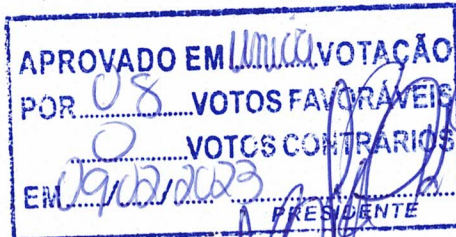 APROVADO EM Única VOTAÇÃO
POR 08 VOTOS FAVORÁVEIS
0 VOTOS CONTRÁRIOS
EM 09/02/2023
PRESIDENTE